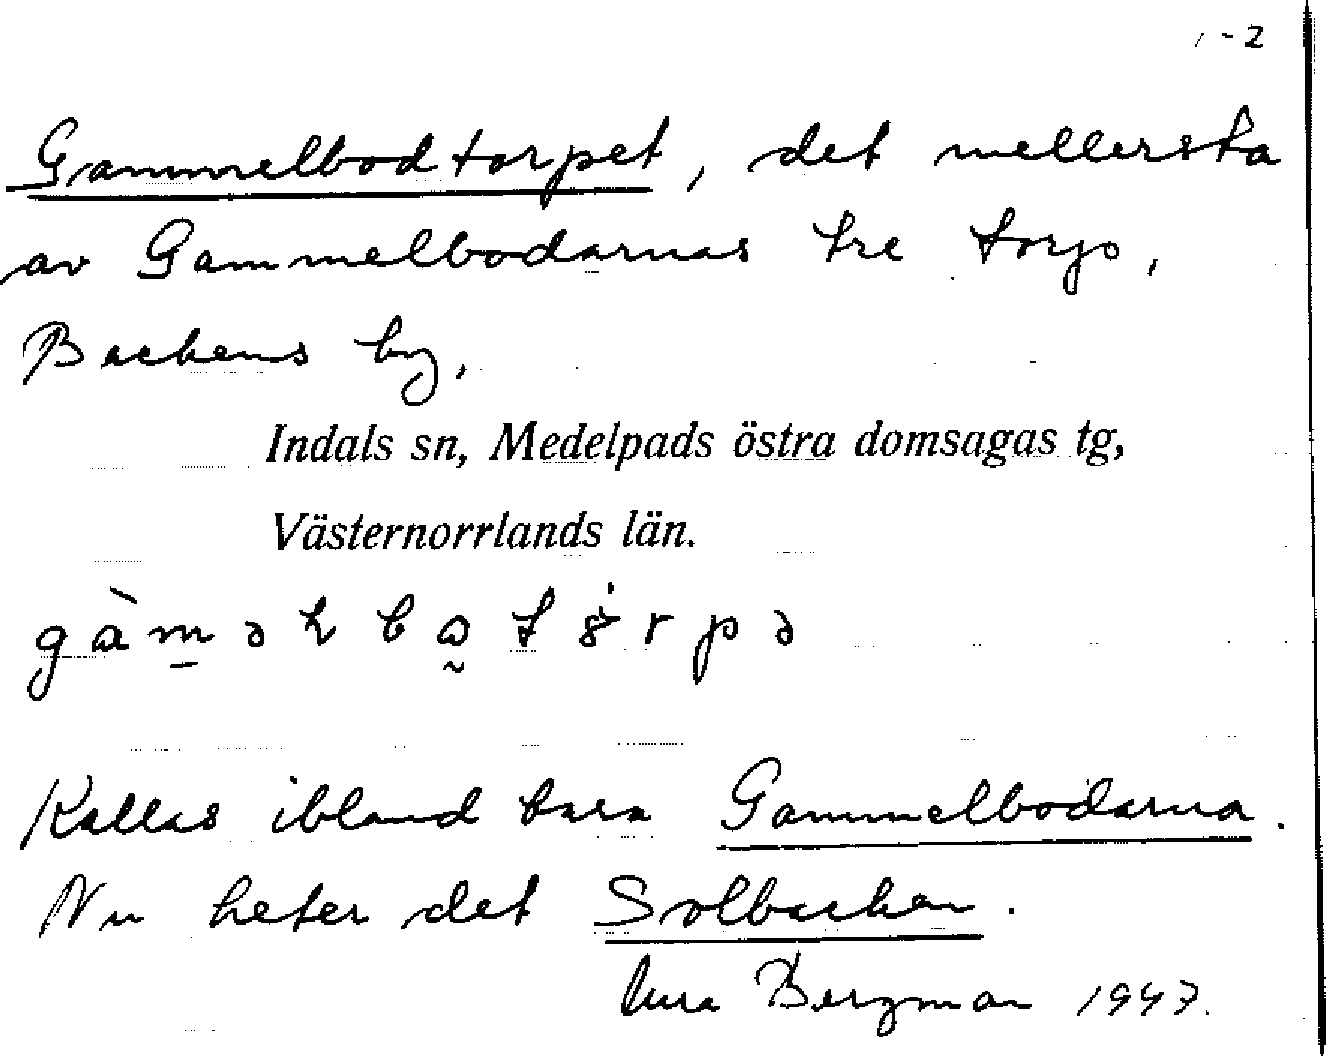 1-2
Gammelbodtorpet, det mellersta
av Gammelbodarnas tre torp,
Backens by,
Indals sn, Medelpads östra domsagas tg,
Västernorrlands län.
Kallas ibland bara Gammelbodarna.
Nu heter det Solbacken.
Bergman 1947.